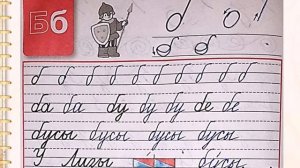 Бб б о ı
б б
б б б б б б б б б
ба ба бу бу бу бе бе
бусы бусы бусы бусы
У Лизы бусы